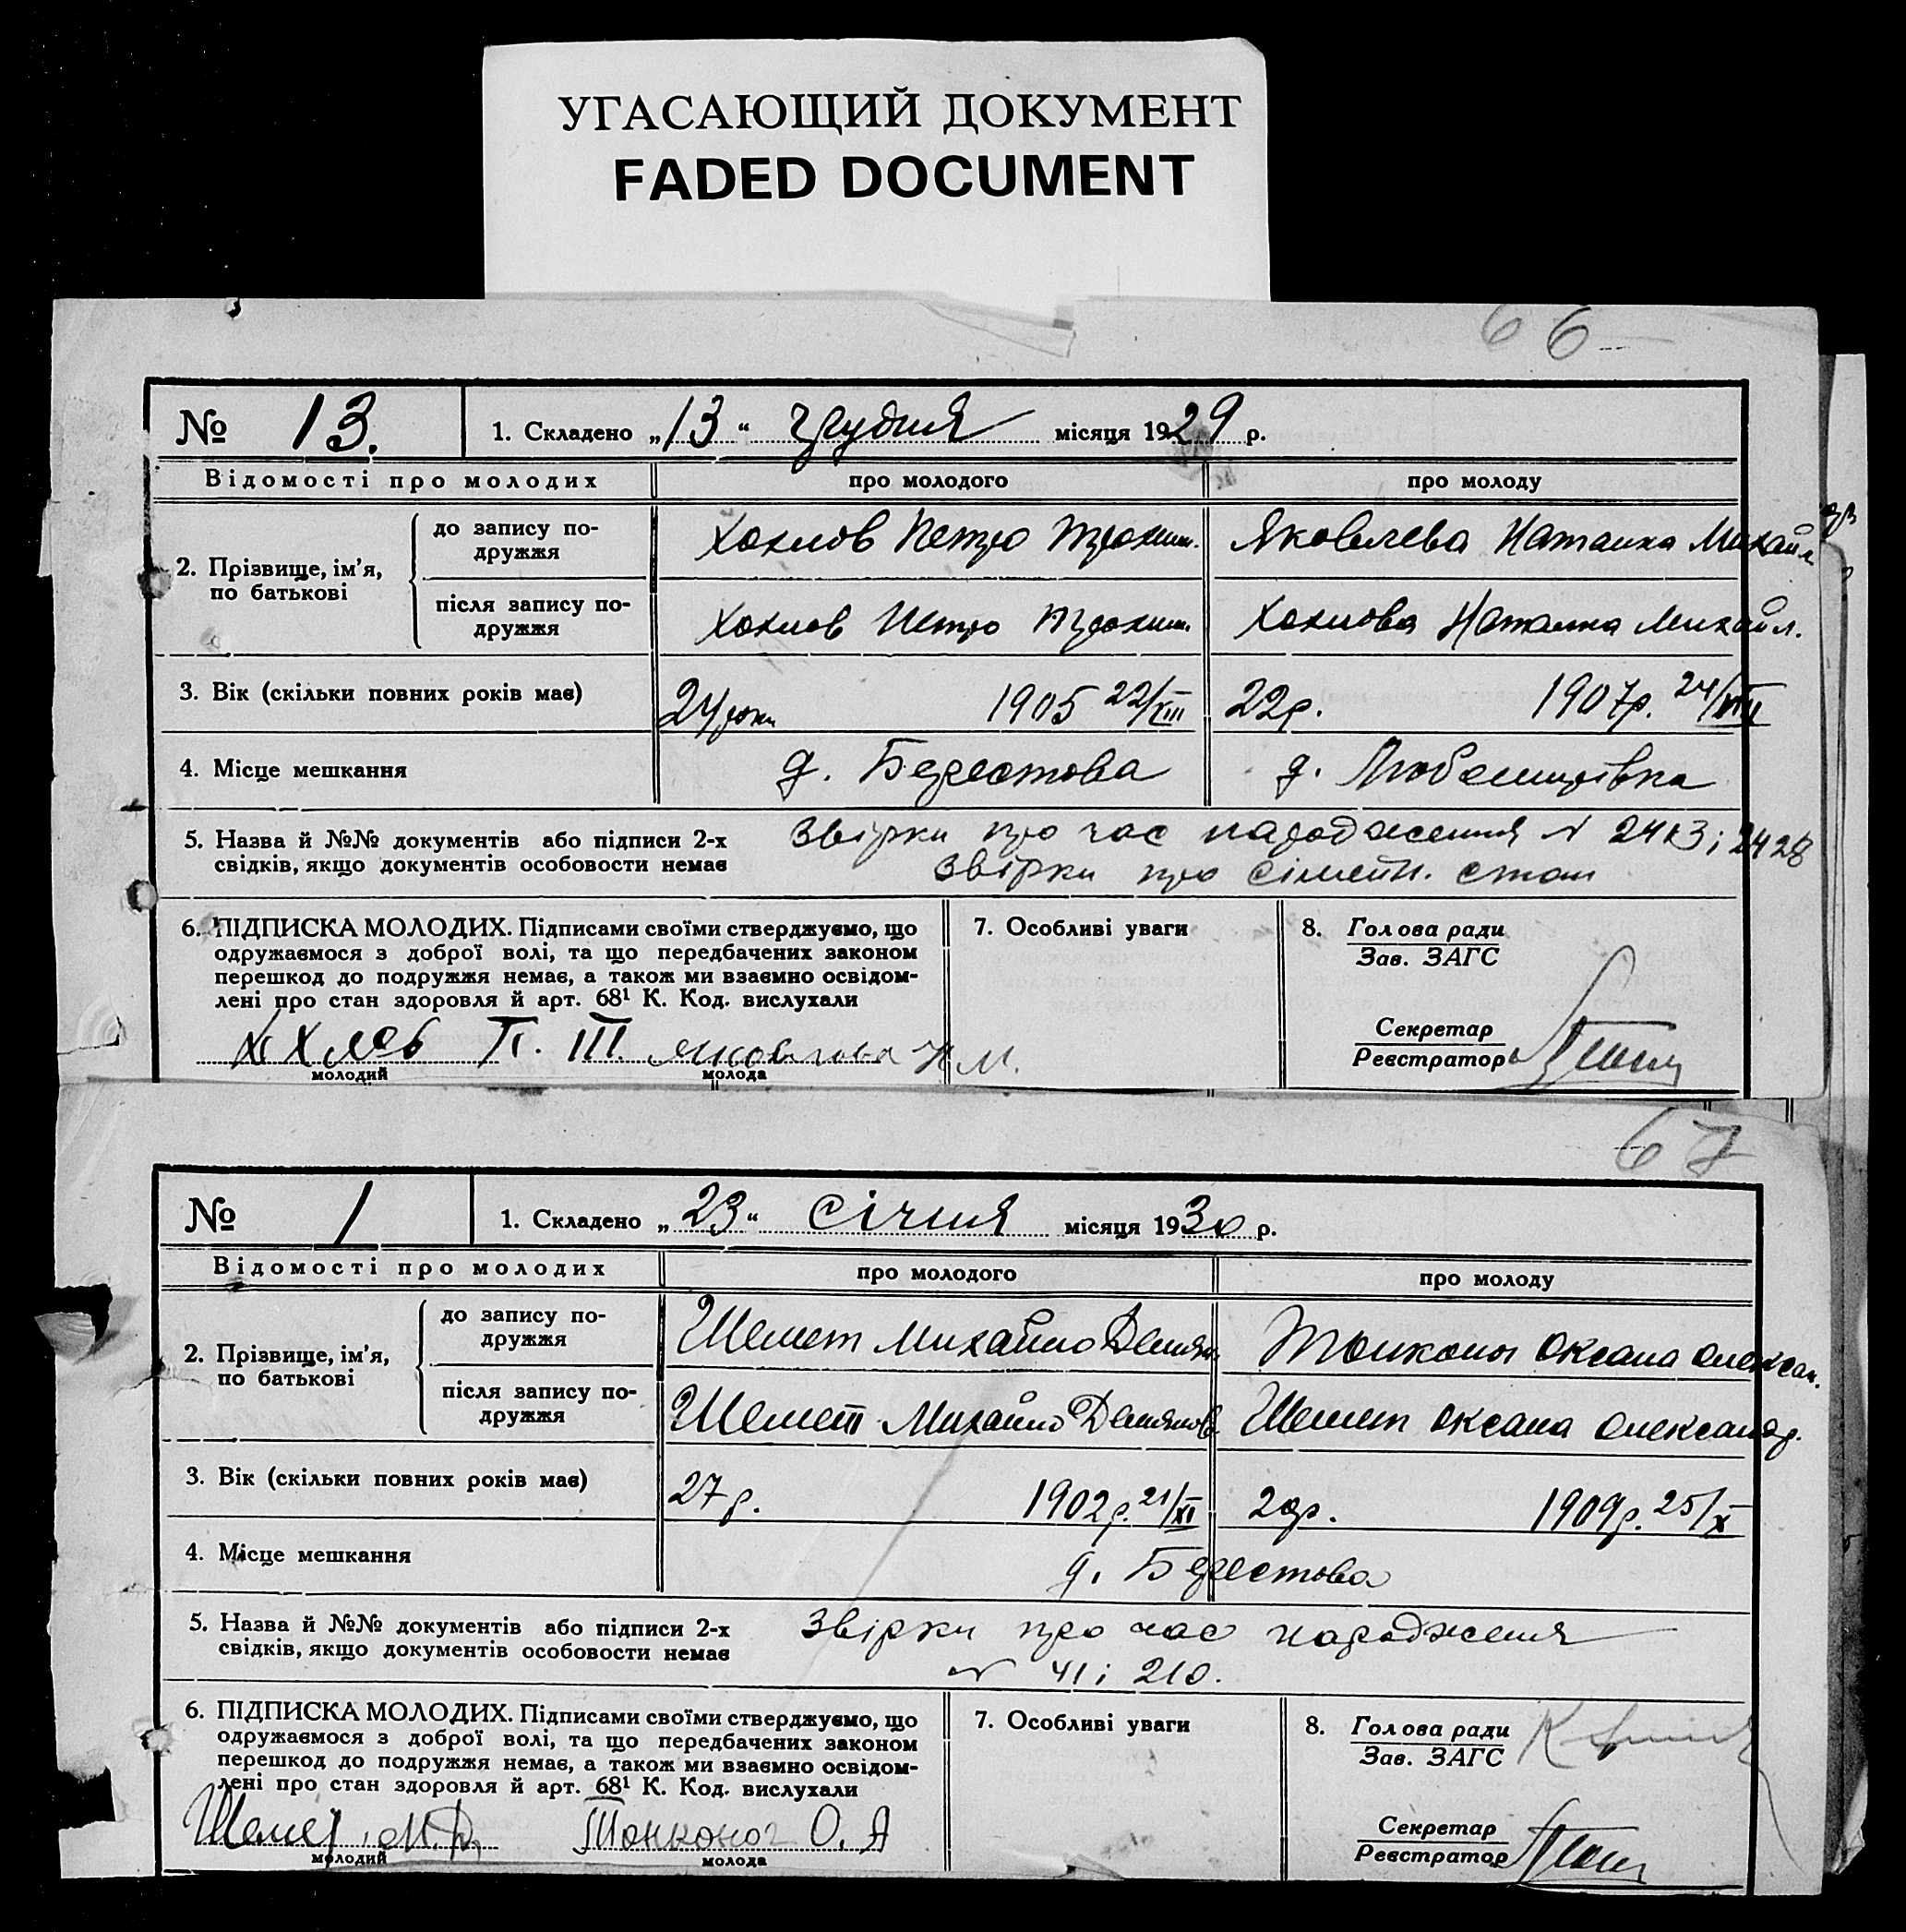 УГАСАЮЩИЙ ДОКУМЕНТ
FADED DOCUMENT
66
№ 13. 1. Складено „13“ грудня місяця 1929 р.
Відомості про молодих про молодого про молоду
2. Прізвище, ім’я, по батькові
до запису по-
дружжя
Хохлов Петро Трохим. Яковлева Наталка Михайл
після запису по-
дружжя
Хохлов Петро Трохим. Хохлова Наталка Михайл.
3. Вік (скільки повних років має) 24 роки 1905 22/VIII 22р. 1907р. 24/VIII
4. Місце мешкання д. Берестова д.
5. Назва й №№ документів або підписи 2-х
свідків, якщо документів особовости немає
Звірки про час народження N 2413 і 2428
Звірки про сімейн. стан
6. ПІДПИСКА МОЛОДИХ. Підписами своїми стверджуємо, що
одружаємося з доброї волі, та що передбачених законом
перешкод до подружжя немає, а також ми взаємно освідом-
лені про стан здоровля й арт. 68¹ К. Код. вислухали
Яковлева Н М.
молодий молода
7. Особливі уваги
8. Голова ради
Зав. ЗАГС
Секретар
Реєстратор
67
№ 1 1. Складено „23“ січня місяця 1930 р.
Відомості про молодих про молодого про молоду
2. Прізвище, ім’я,
по батькові
до запису по-
дружжя
Шемет Михайло Демян Тонконог Оксана Олексан.
після запису по-
дружжя
Шемет Михайло Демянов. Шемет Оксана Олександр.
3. Вік (скільки повних років має) 27р. 1902р. 21/XI 20р. 1909р. 25/X
4. Місце мешкання д. Берестова
5. Назва й №№ документів або підписи 2-х
свідків, якщо документів особовости немає
Звірки про час народження
N 41 і 210.
6. ПІДПИСКА МОЛОДИХ. Підписами своїми стверджуємо, що
одружаємося з доброї волі, та що передбачених законом
перешкод до подружжя немає, а також ми взаємно освідом-
лені про стан здоровля й арт. 68¹ К. Код. вислухали
Шемет М. Д. Тонконог О. А
молодий молода
7. Особливі уваги
8. Голова ради
Зав. ЗАГС
Секретар
Реєстратор